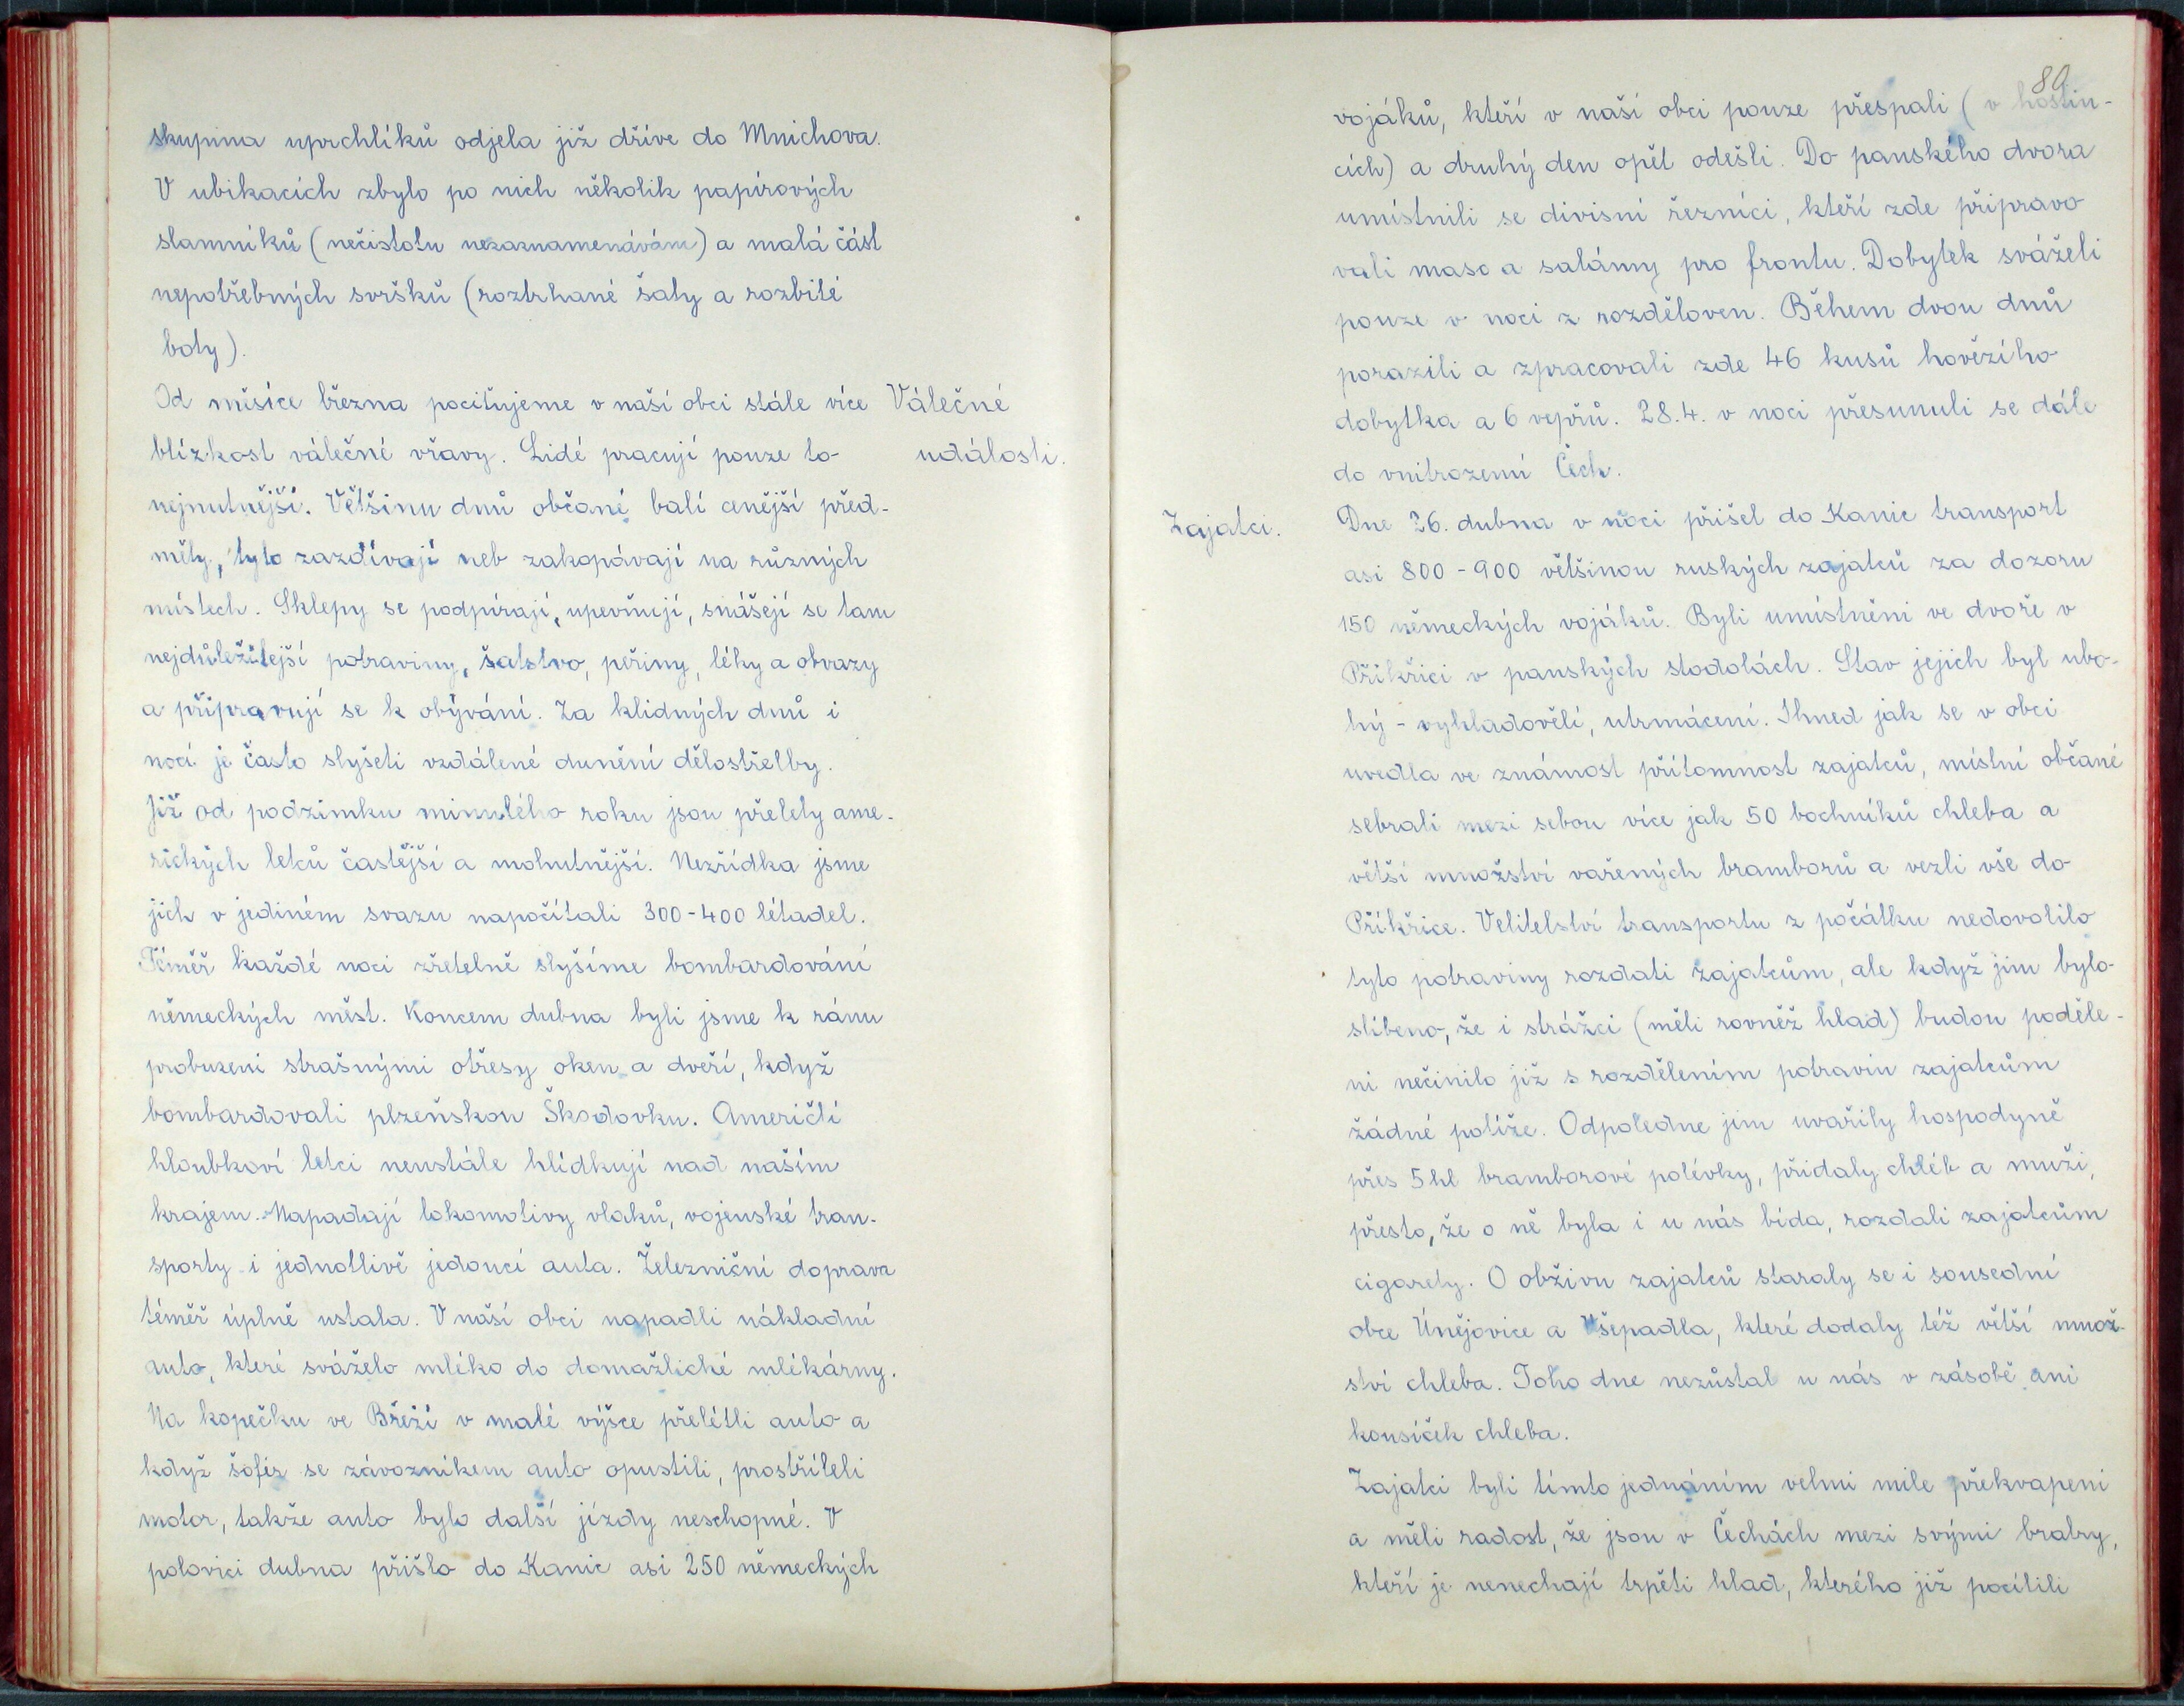 skupina uprchlíků odjela již dříve do Mnichova.
V ubikacích zbylo po nich několik papírových
slamníků (nečistotu nezaznamenávám) a malá část
nepotřebných svršků (roztrhané šaty a rozbité
boty).
Od měsíce března pociťujeme v naší obci stále více
blízkost válečné vřavy. Lidé pracují pouze to
nejnutnější. Většinu dnů občané balí cenější před-
měty, tyto zazdívají neb zakopávají na různých
místech. Sklepy se podpírají, upevňují, snášejí se tam
nejdůležitější potraviny, šatstvo, peřiny, léky a obvazy
a připravují se k obývání. Za klidných dnů i
nocí je často slyšeti vzdálené dunění dělostřelby.
Již od podzimku minulého roku jsou přelety ame-
rických letců častější a mohutnější. Nezřídka jsme
jich v jediném svazu napočítali 300-400 létadel.
Téměř každé noci zřetelně slyšíme bombardování
německých měst. Koncem dubna byli jsme k ránu
probuzeni strašnými otřesy oken a dveří, když
bombardovali plzeňskou Škodovku. Američtí
hloubkoví letci neustále hlídkují nad naším
krajem. Napadají lokomotivy vlaků, vojenské tran-
sporty i jednotlivě jedoucí auta. Železniční doprava
téměř úplně ustala. V naší obci napadli nákladní
auto, které sváželo mléko do domažlické mlékárny.
Na kopečku ve Březí v malé výšce přelétli auto a
když šofér se závozníkem auto opustili, prostříleli
motor, takže auto bylo další jízdy neschopné. V
polovici dubna přišlo do Kanic asi 250 německých
Válečné
události.
80
vojáků, kteří v naší obci pouze přespali (v hostin-
cích) a druhý den opět odešli. Do panského dvora
umístnili se divisní řezníci, kteří zde připravo
vali maso a salámy pro frontu. Dobytek sváželi
pouze v noci z rozděloven. Během dvou dnů
porazili a zpracovali zde 46 kusů hovězího
dobytka a 6 vepřů. 28.4. v noci přesunuli se dále
do vnitrozemí Čech.
Zajatci.
Dne 26. dubna v noci přišel do Kanic transport
asi 800-900 většinou ruských zajatců za dozoru
150 německých vojáků. Byli umístněni ve dvoře v
Příkřici v panských stodolách. Stav jejich byl ubo-
hý - vyhladovělí, utrmácení. Ihned jak se v obci
uvedla ve známost přítomnost zajatců, místní občané
sebrali mezi sebou více jak 50 bochníků chleba a
větší množství vařených bramborů a vezli vše do
Příkřice. Velitelství transportu z počátku nedovolilo
tyto potraviny rozdati zajatcům, ale když jim bylo
slíbeno, že i strážci (měli rovněž hlad) budou poděle-
ni nečinilo již s rozdělením potravin zajatcům
žádné potíže. Odpoledne jim uvařily hospodyně
přes 5 hl bramborové polévky, přidaly chléb a muži,
přesto, že o ně byla i u nás bída, rozdali zajatcům
cigarety. O obživu zajatců staraly se i sousední
obce Únějovice a Všepadla, které dodaly též větší množ-
ství chleba. Toho dne nezůstal u nás v zásobě ani
kousíček chleba.
Zajatci byli tímto jednáním velmi mile překvapeni
a měli radost, že jsou v Čechách mezi svými bratry,
kteří je nenechají trpěti hlad, kterého již pocítili